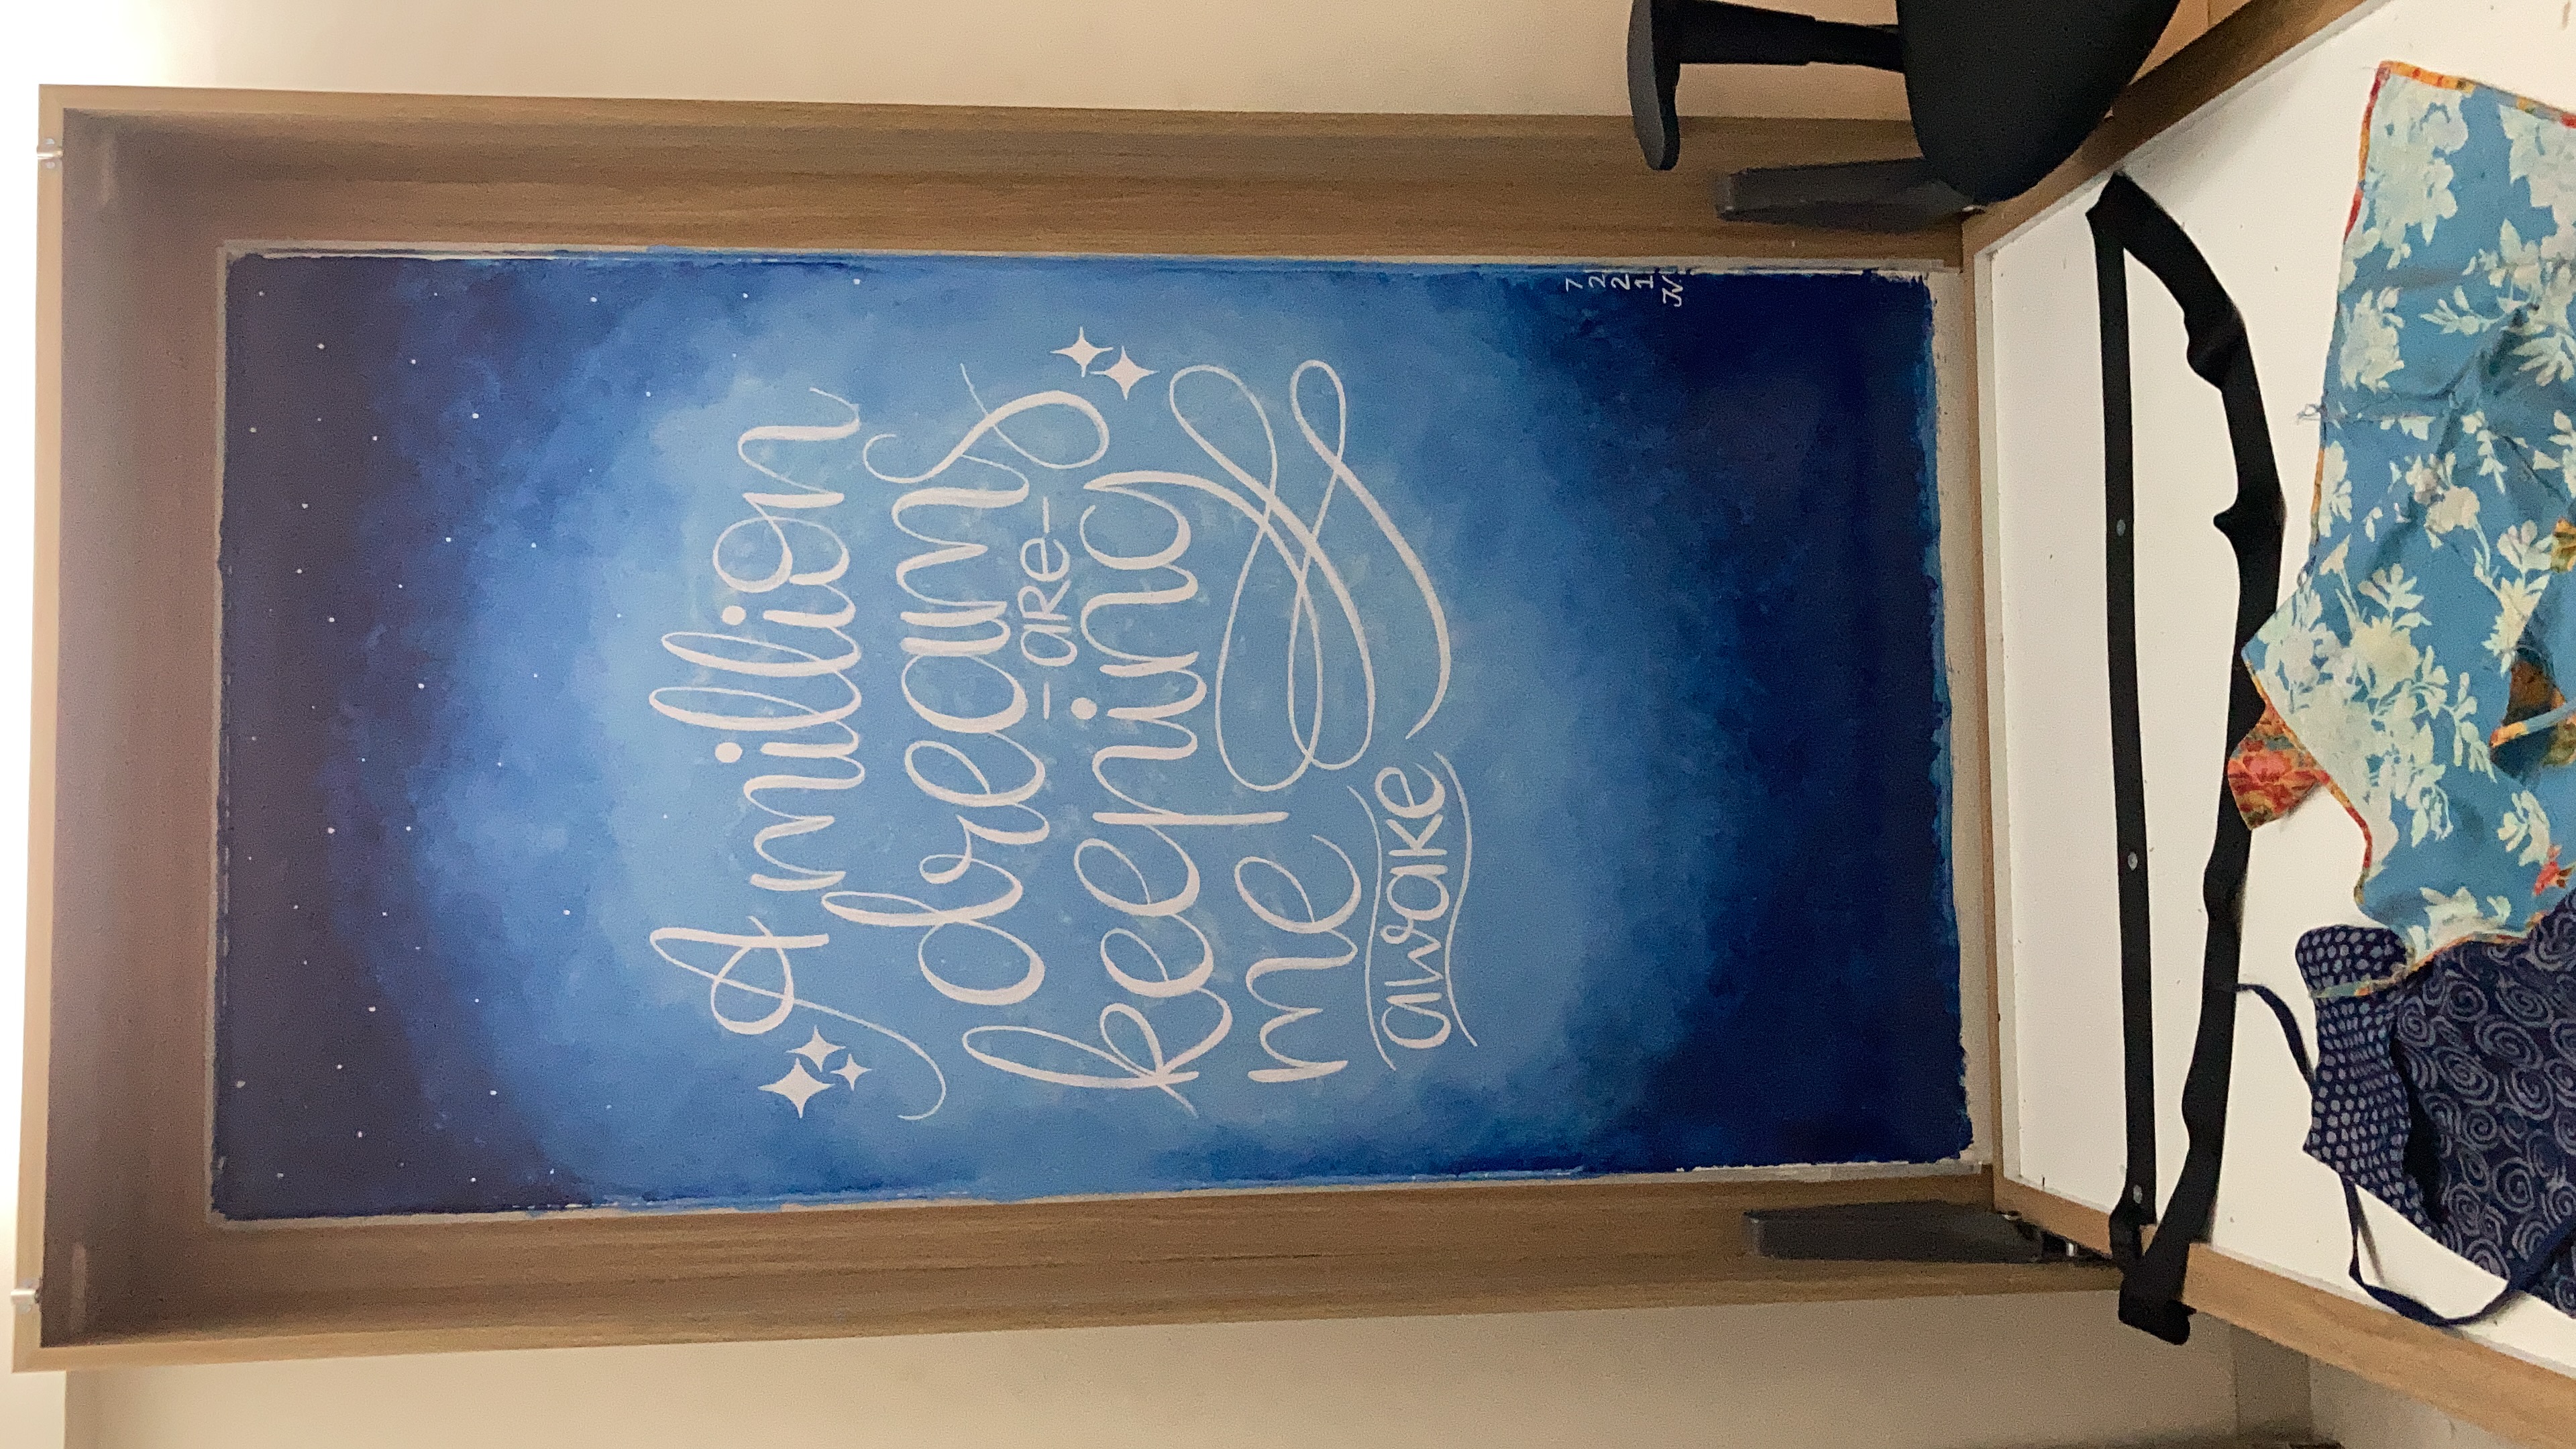 A million
dreams
-are-
keeping
me
awake
7
2
2
1
JV.